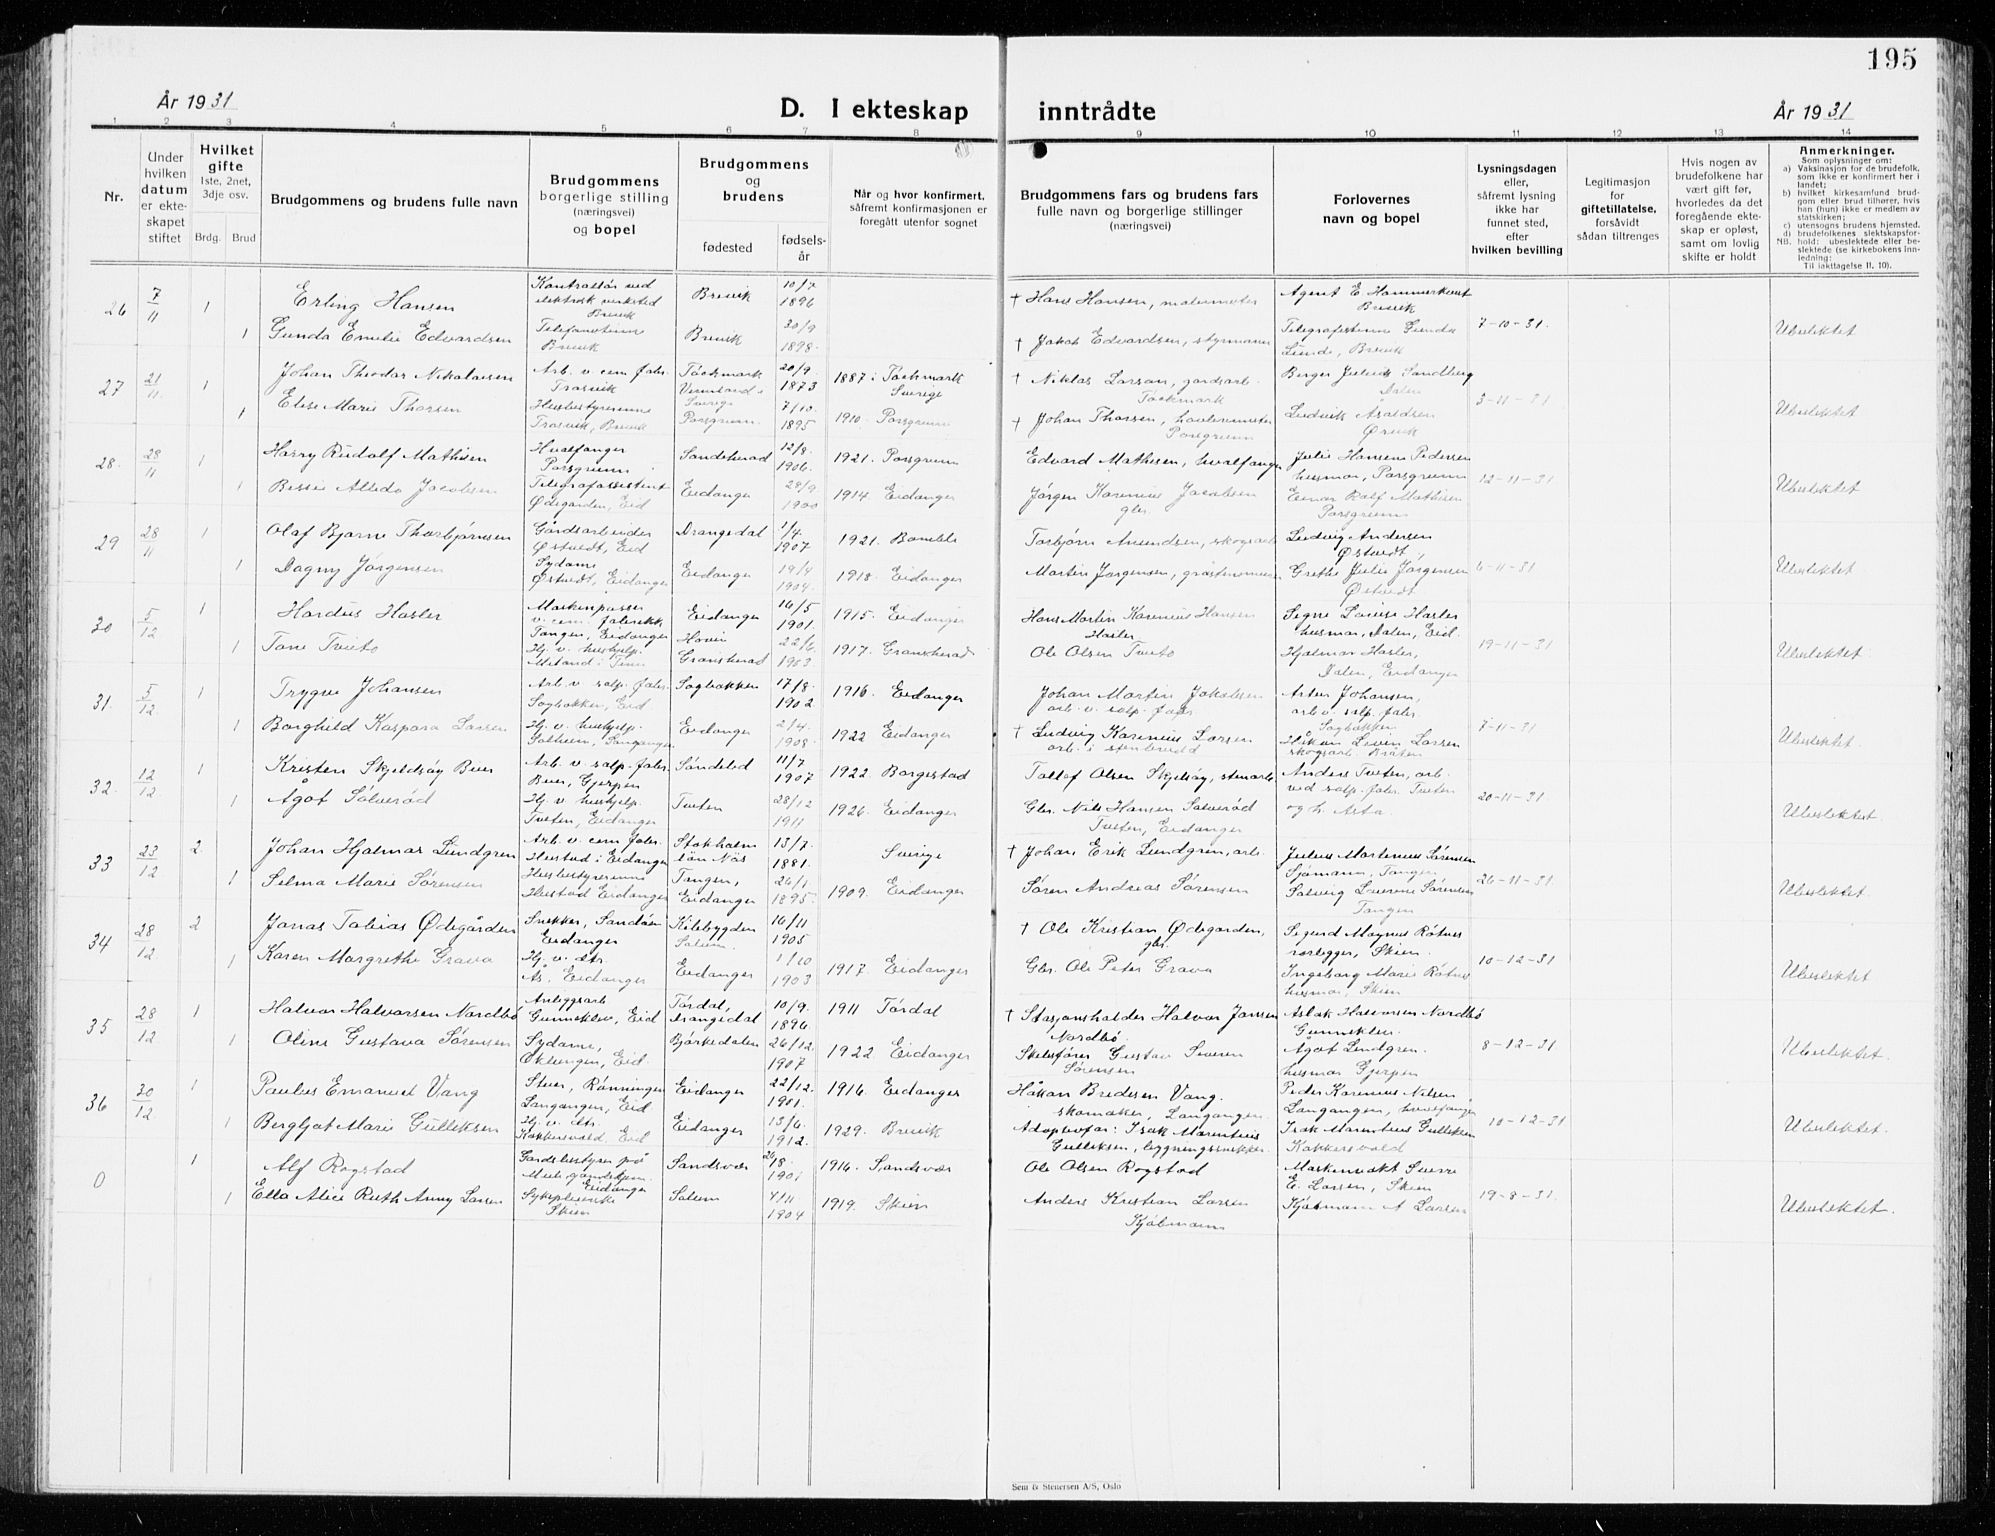 195
År 1931
D. I ekteskap inntrådte
År 1931
1 2 3 4 5 6 7 8 9 10 11 12 13 14
Nr.
Under hvilken datum er ekteskapet stiftet
Hvilket gifte
1ste, 2net, 3dje osv.
Brdg. Brud
Brudgommens og brudens fulle navn
Brudgommens borgerlige stilling (næringsvei) og bopel
Brudgommens og brudens
fødested
fødselsår
Når og hvor konfirmert, såfremt konfirmasjonen er foregått utenfor sognet
Brudgommens fars og brudens fars fulle navn og borgerlige stillinger (næringsvei)
Forlovernes navn og bopel
Lysningsdagen eller, såfremt lysning ikke har funnet sted, efter hvilken bevilling
Legitimasjon for giftetillatelse, forsåvidt sådan tiltrenges
Hvis nogen av brudefolkene har vært gift før, hvorledes da det foregående ekteskap er opløst, samt om lovlig skifte er holdt
Anmerkninger.
Som oplysninger om:
a) Vaksinasjon for de brudefolk, som ikke er konfirmert her i landet;
b) hvilket kirkesamfund brudgom eller brud tilhører, hvis han (hun) ikke er medlem av statskirken;
c) utensogns brudens hjemsted.
d) brudefolkenes slektskapsforhold: ubeslektede eller beslektede (se kirkebokens innledning:
NB. Til iakttagelse II. 10).
26 7/11 1 Erling Hansen Kontrollør ved elektrisk verksted Brevik Brevik 10/7 1896 † Hans Hansen, malermester Agent E. Hammerkvist Brevik
1 Gunda Emelie Edvardsen Telefonistinne Brevik Brevik 30/9 1898. † Jakob Edvardsen, styrmann Telegrafistinne Gunda Lunde, Brevik 7-10-31. Ubeslektet
27 21/11 1 Johan Theodor Nikolaisen Arb. v. cem. fabr. Trosvik Töckmark Vermland i Sverige 20/9 1873 1887 i Töckmark Sverige † Niklas Larsson, gårdsarb. Töckmark Berger Julius Sandberg Dalen
1 Elise Marie Thorsen Husbestyrerinne Trosvik, Brevik Porsgrunn. 7/10. 1895 1910. Porsgrunn † Johan Thorsen, havnemester Porsgrunn Ludvik Ørvik 3-11-31 Ubeslektet
28. 28/11 1 Harry Rudolf Mathisen Hvalfanger Porsgrunn Sandeherad 12/8. 1906. 1921. Porsgrunn Edvard Mathisen, hvalfanger Julie Hansine Pedersen husmor, Porsgrunn
1 Bessie Alleda Jacobsen Telegrafassistent Ødegården, Eid Eidanger 29/9 1900 1914. Eidanger Jørgen Karenius Jacobsen gbr. Einar Ralf Mathisen Porsgrunn 12-11-31 Ubeslektet
29 28/11 1 Olaf Bjarne Thorbjørnsen Gårdsarbeider Østvedt, Eid Drangedal 1/4. 1907 1921. Bamble Torbjørn Amundsen, skogsarb. Ludvig Andersen Østvedt,
1 Dagny Jørgensen Sydame Østvedt, Eidanger Eidanger 19/4 1904. 1918. Eidanger Martin Jørgensen, Grethe Julie Jørgensen Østvedt 6-11-31 Ubeslektet
30 5/12 1 Hardus Hasler Maskinpasser v. cem. fabrikk Tangen, Eidanger Eidanger 16/5 1901. 1915. Eidanger Hans Martin Karenius Hansen Hasler Signe Louise Hasler husmor, Dalen, Eid.
1 Tone Tveito Hj. v. hushjelp. Miland i Tinn Hovin Gransherad 22/6 1903. 1917. Gransherad Ole Olsen Tveito Hjalmar Hasler, Dalen, Eidanger 19-11-31 Ubeslektet
31. 5/12 1 Trygve Johansen Arb. v. salp. fabr. Sagbakken, Eid Sagbakken 17/8. 1902 1916. Eidanger Johan Martin Jakobsen arb. v. salp. fabr Johansen, arb. v. salp. fabr. Sagbakken
1 Borghild Kaspara Larsen Hj. v. hushjelp. Solheim, Langangen Eidanger 2/4. 1908. 1922 Eidanger † Ludvig Karenius Larsen arb. i stenbrudd Håkon Levin Larsen skogsarb. Bråten 7-11-31 Ubeslektet.
32. 12/12 1 Kristen Skjeldsøy Buer Arb. v. salp. fabr. Buer, Gjerpen Søndeled 11/7 1907 1922. Borgestad Tallef Olsen Skjelsøy, stenarb. Anders Tveten, arb. ved salp. fabr. Tveten
1 Ågot Sølverød Hj. v. hushjelp. Tveten, Eidanger Tveten 28/12 1911 1926. Eidanger Gbr. Nils Hansen Sølverød Tveten, Eidanger og h. Asta. 20-11-31 Ubeslektet
33 23/12 2. Johan Hjalmar Lundgren Arb. v. cem. fabr. Heistad i Eidanger Stokholm län Näs 13/7. 1881. Sverige † Johan Erik Lundgren, arb. Julius Martinius Sørensen Sjømann, Tangen
1 Selma Marie Sørensen Husbestyrerinne Heistad Eidanger Tangen, Eidanger 26/1 1895. 1909. Eidanger Søren Andreas Sørensen Solveig Laurense Sørensen Tangen 26-11-31. Ubeslektet.
34 28/12. 2 Jonas Tobias Ødegården Snekker, Sandåen Eidanger Kilebygden Solum. 16/11 1905 † Ole Kristian Ødegården, gbr. Sigurd Magnus Røtnes rørlegger, Skien.
1 Karen Margrethe Grava Hj. v. dtr. Ås, Eidanger Eidanger 1/10 1903 1917. Eidanger Gbr. Ole Peter Grava Ingeborg Marie Røtnes husmor, Skien 10-12-31 Ubeslektet
35 28/12 1 Halvor Halvorsen Nordbø Anleggsarb Gunneklev, Eid Tørdal, Drangedal 10/9. 1896. 1911 Tørdal † Stasjonsholder Halvor Jansen Nordbø. Aslak Halvorsen Nordbø Gunneklev.
1 Oline Gustava Sørensen Sydame, Oklungen, Eid. Bjørkedalen 26/12. 1907 1922. Eidanger Gustav Severin Sørensen Ågot Lindgren. husmor Gjerpen 8-12-31 Ubeslektet.
36 30/12. 1 Paulus Emanuel Vang Stuer, Rønningen Langangen, Eid Eidanger 22/12. 1901. 1916. Eidanger Håkon Bredesen Vang. skomaker, Langangen. Peder Karenius Nilsen Langangen, hvalfanger
1 Bergljot Marie Gulliksen Hj. v. dtr. Kokkersvold. Eid Eidanger 13/6. 1912. 1929. Brevik Adoptivfar: Isak Marentius Gulliksen, bygningssnekker. Isak Marentius Gulliksen Kokkersvold 10-12-31 Ubeslektet.
0 1 Alf Rogstad Gårdsbestyrer på Eidanger Sandsvær 20/8. 1901 1916. Sandsvær Ole Olsen Rogstad Maskinvakt Sverre E. Larsen, Skien
1 Ella Alice Ruth Anny Larsen Sykepleierske Skien Solum 4/11. 1904 1919. Skien Anders Kristian Larsen Kjøbmann Kjøbmann A Larsen 19-8-31. Ubeslektet.
Sem & Stenersen A/S, Oslo